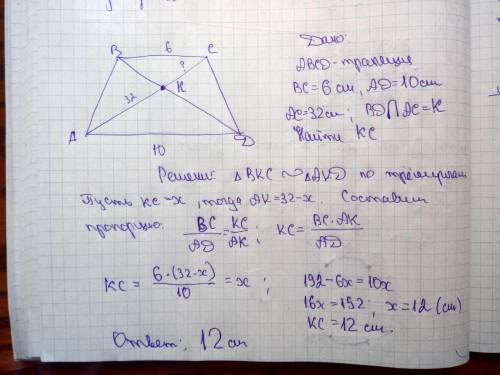 Дано:
B 6 C
ABCD - трапеция
?
BC = 6 см, AD = 10 см
K
32
AC = 32 см; BD ∩ AC = K
A D
Найти KC
10
Решение: △BKC ∾ △AKD по трём углам
Пусть KC - x, тогда AK = 32 - x. Составим
пропорцию. BC/AD = KC/AK; KC = BC · AK/AD
KC = 6 · (32 - x)/10 = x; 192 - 6x = 10x
16x = 192; x = 12 (см)
KC = 12 см.
Ответ: 12 см